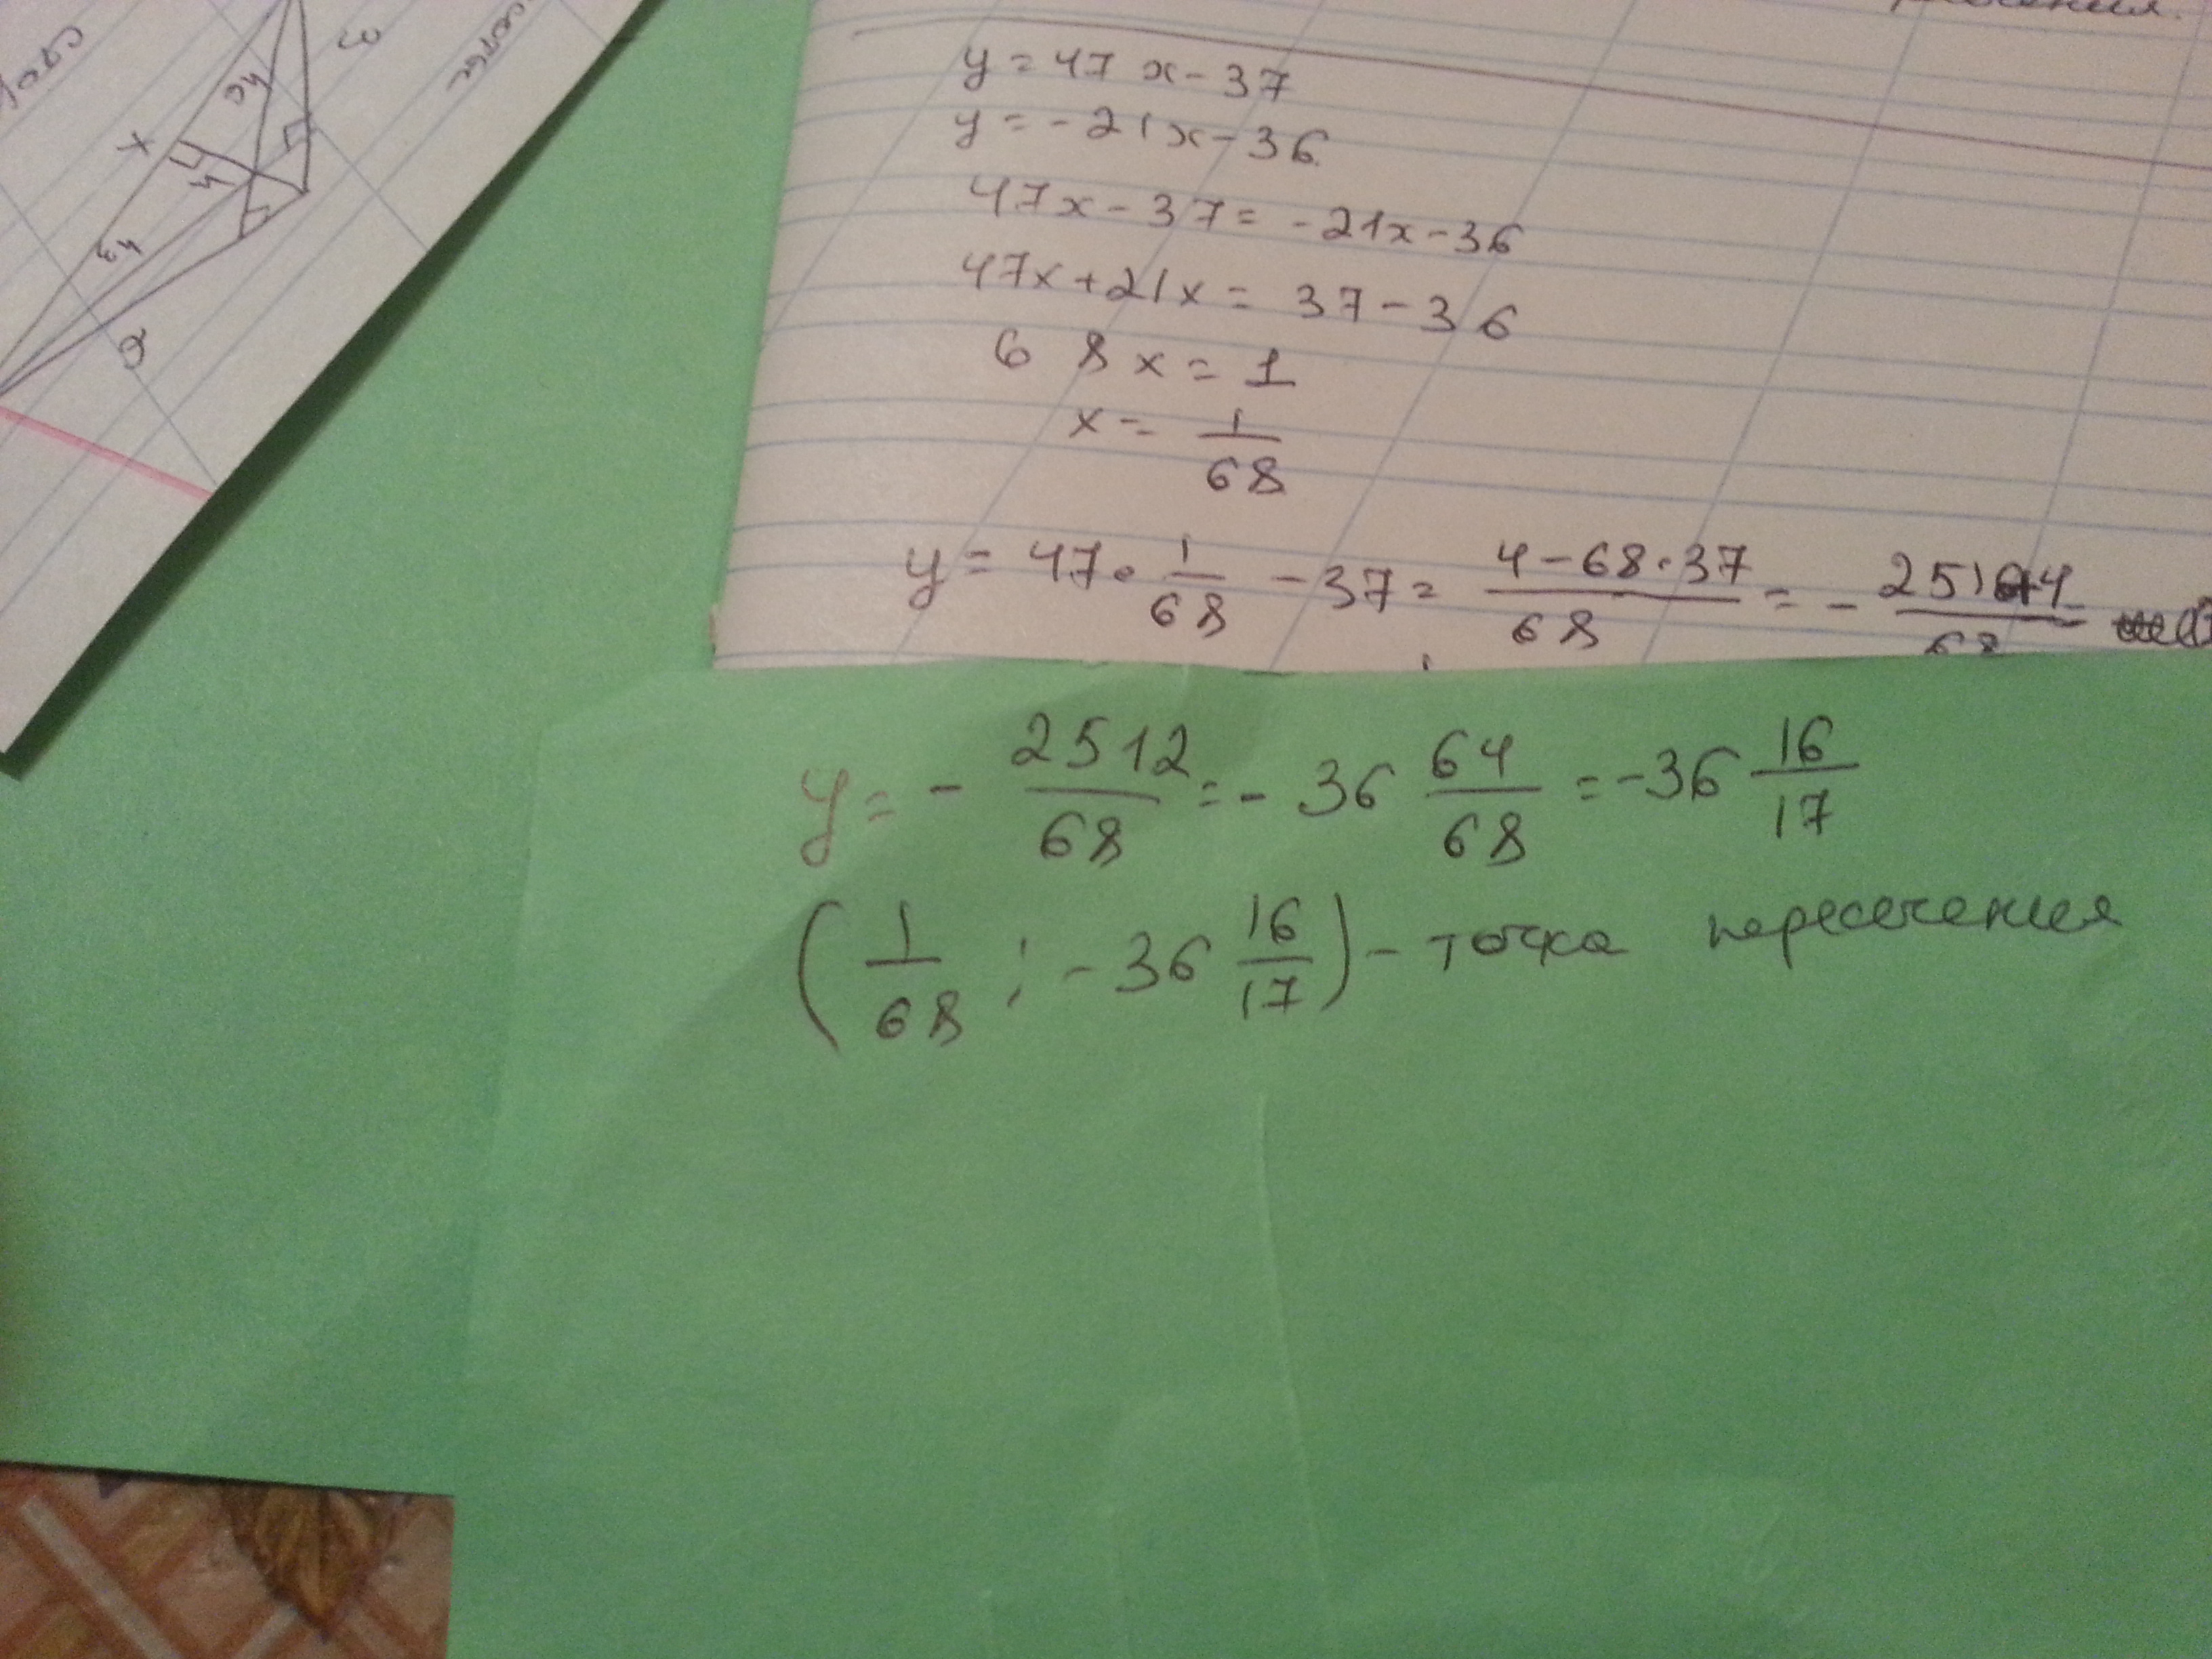 y = 47x - 37
y = -21x - 36
47x - 37 = -21x - 36
47x + 21x = 37 - 36
68x = 1
x = 1/68
y = 47 · 1/68 - 37 = (4 - 68 · 37)/68 = -
y = - 2512/68 = - 36 64/68 = -36 16/17
(1/68 ; -36 16/17) - точка пересечения